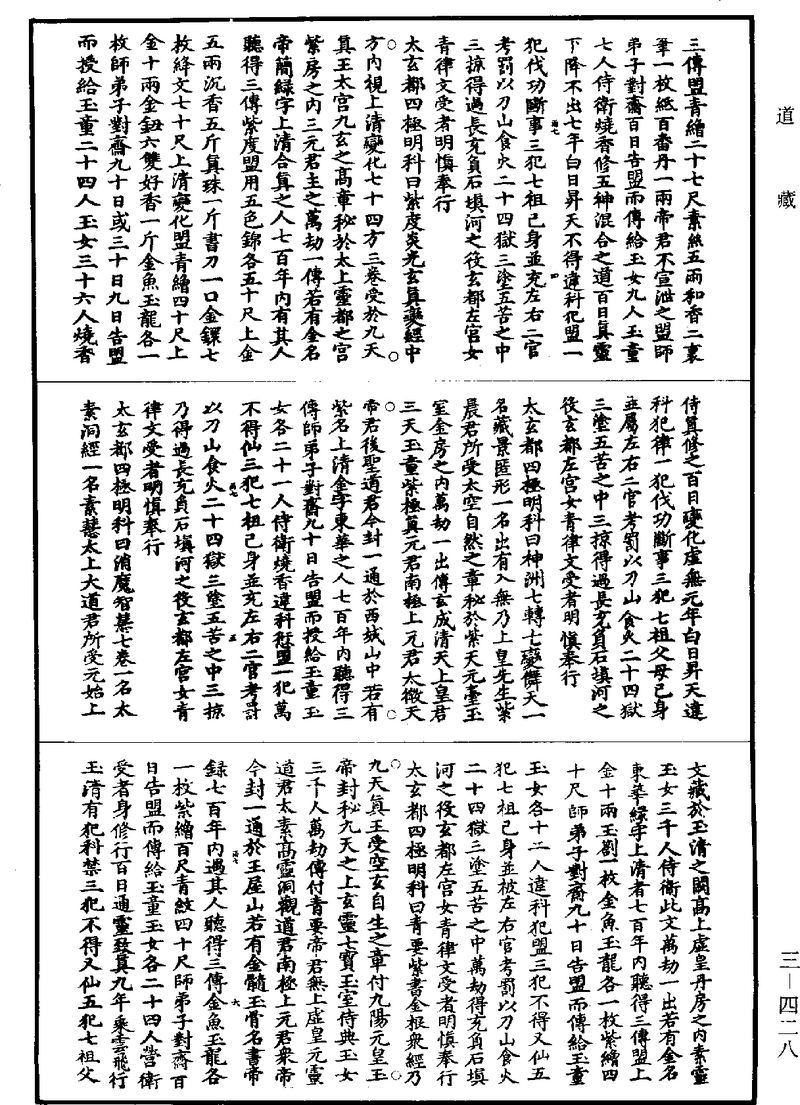 道藏
三傳盟青繒二十七尺素絲五兩和香二裹
筆一枚紙百番丹一兩帝君不宣泄之盟師
弟子對齋百日告盟而傳給玉女九人玉童
七人侍衛燒香修五神混合之道百日真靈
下降不出七年白日昇天不得違科犯盟一
犯伐功斷事三犯七祖己身並充左右二官
考罰以刀山食火二十四獄三塗五苦之中
三掠得過長充負石填河之役玄都左宮女
青律文受者明慎奉行
太玄都四極明科曰紫度炎光玄真變經中
方內視上清變化七十四方三卷受於九天
真王太宮九玄之高章秘於太上靈都之宮
紫房之內三元君主之萬劫一傳若有金名
帝簡綠字上清合真之人七百年內有其人
聽得三傳紫度盟用五色錦各五十尺上金
五兩沉香五斤真珠一斤書刀一口金鐶七
枚絳文七十尺上清變化盟青繒四十尺上
金十兩金鈕六雙好香一斤金魚玉龍各一
枚師弟子對齋九十日或三十日九日告盟
而授給玉童二十四人玉女三十六人燒香
侍真修之百日變化虛無元年白日昇天違
科犯律一犯伐功斷事三犯七祖父母己身
並屬左右二官考罰以刀山食火二十四獄
三塗五苦之中三掠得過長充負石填河之
役玄都左宮女青律文受者明慎奉行
太玄都四極明科曰神洲七轉七變儛天一
名藏景匿形一名出有入無乃上皇先生紫
晨君所受太空自然之章秘於紫天元臺玉
室金房之內萬劫一出傳玄成清天上皇君
三天玉童紫極真元君南極上元君太微天
帝君後聖道君今封一通於西城山中若有
紫名上清金字東華之人七百年內聽得三
傳師弟子對齋九十日告盟而授給玉童玉
女各二十一人侍衛燒香違科愆盟一犯萬
不得仙三犯七祖己身並充左右二官考罰
以刀山食火二十四獄三塗五苦之中三掠
乃得過長充負石填河之役玄都左宮女青
律文受者明慎奉行
太玄都四極明科曰消魔智慧七卷一名太
素洞經一名素慧太上大道君所受元始上
文藏於玉清之闕高上虛皇丹房之內素靈
玉女三千人侍衛此文萬劫一出若有金名
東華綠字上清者七百年內聽得三傳盟上
金十兩玉劄一枚金魚玉龍各一枚紫繒四
十尺師弟子對齋九十日告盟而傳給玉童
玉女各十二人違科犯盟三犯不得又仙五
犯七祖己身並被左右官考罰以刀山食火
二十四獄三塗五苦之中萬劫得充負石填
河之役玄都左宮女青律文受者明慎奉行
太玄都四極明科曰青要紫書金根眾經乃
九天真王受空玄自生之章付九陽元皇玉
帝封秘九天之上玄靈七寶玉室侍典玉女
三千人萬劫傳付青要帝君無上虛皇元靈
道君太素高靈洞觀道君南極上元君眾帝
今封一通於王屋山若有金髓玉骨名書帝
錄七百年內遇其人聽得三傳金魚玉龍各
一枚紫繒百尺青紋四十尺師弟子對齋百
日告盟而傳給玉童玉女各二十四人營衛
受者身修行百日通靈致真九年乘雲飛行
玉清有犯科禁三犯不得又仙五犯七祖父
三—四二八